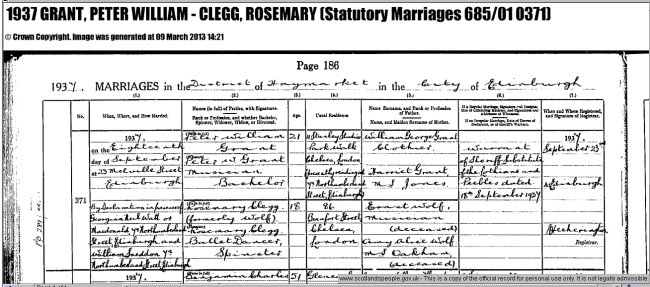 1937 GRANT, PETER WILLIAM - CLEGG, ROSEMARY (Statutory Marriages 685/01 0371)
© Crown Copyright. Image was generated at 09 March 2013 14:21
Page 186
1937. MARRIAGES in the District of Haymarket in the City of Edinburgh
(1.) (2.) (3.) (4.) (5.) (6.) (7.)
No. When, Where, and How Married. Names (in full) of Parties, with Signatures. Rank or Profession, and whether Bachelor, Spinster, Widower, Widow, or Divorced. Age. Usual Residence Name Surname, and Rank or Profession of Father. Name, and Maiden Surname of Mother. When and Where Registered, and Signature of Registrar.
371
1937.
on the Eighteenth
day of September
at 23 Melville Street
Edinburgh
By Declaration in presence of
Georgina Watt or
Macdonald
Street, Edinburgh and
William Sneddon
Northumberland Street, Edinburgh
Peter William
Grant
Peter W Grant
Musician
Bachelor
21
Stanley Studios
Park Walk
Chelsea, London
Northumberland
Street, Edinburgh
William George Grant
Harriet Grant,
M S Jones.
Warrant
of Sheriff Substitute
of the Lothians and
Peebles dated
18th September 1937
1937.
September 23rd
at Edinburgh
Registrar.
Rosemary Clegg
(formerly Wolf)
Rosemary Clegg.
Ballet Dancer,
Spinster
18
26
Beaufort Street
Chelsea,
London
Ernest Wolf,
Musician
(deceased)
Amy Alice Wolf
M S Oakham,
(deceased)
1937. Benjamin Charles 51
www.scotlandspeople.gov.uk - This is a copy of the official record for personal use only. It is not legally admissible